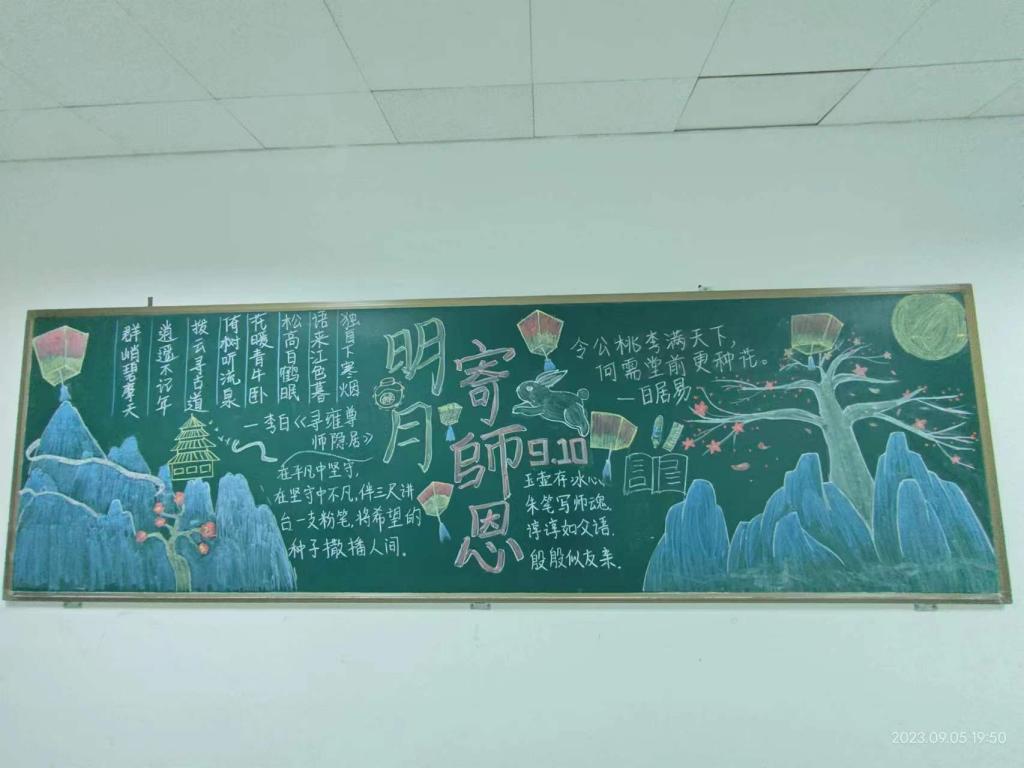 群峭碧摩天
逍遥不记年
拨云寻古道
倚树听流泉
花暖青牛卧
松高白鹤眠
语来江色暮
独自下寒烟
—李白《寻雍尊
师隐居》
在平凡中坚守,
在坚守中不凡,伴三尺讲
台一支粉笔,将希望的
种子撒播人间.
明月
寄師恩
9.10
令公桃李满天下,
何需堂前更种花。
—白居易
玉壶存冰心,
朱笔写师魂.
谆谆如父语,
殷殷似友亲.
2023.09.05 19:50